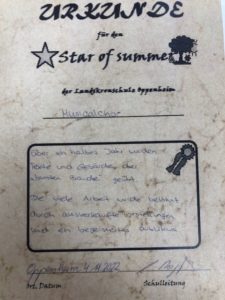 URKUNDE
für den
Star of summer
der Landskronschule Oppenheim
Musicalchor
Über ein halbes Jahr wurden
Texte und Gesänge der
"bunten Bande" geübt.
Die viele Arbeit wurde belohnt
durch ausverkaufte Vorstellungen
und ein begeistertes Publikum
Oppenheim 4.11.2022
Ort, Datum
Schulleitung